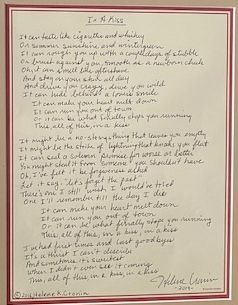 In A Kiss
It can taste like cigarettes and whiskey
Or summer sunshine and wintergreen
It can rough you up with a couple days of stubble
Or brush against you, smooth as a newborn cheek
Oh, it can smell like aftershave
And stay on your skin all day
And drive you crazy, drive you wild
It can hide behind a smile
It can make your heart melt down
It can run you out of town
Or it can be what finally stops you running
This, all of this, in a kiss
It might be a no-strings thing that leaves you empty
It might be the strike of lightning that knocks you flat
It can seal a solemn promise for worse or better
You might steal it from someone you shouldn't have
Oh, I've felt it be forgiveness asked
Let it say "let's forget the past"
There's one I still wish I would've tried
One I'll remember till the day I die
It can make your heart melt down
It can run you out of town
Or it can be what finally stops you running
This, all of this, in a kiss, in a kiss
I've had first times and last goodbyes
It's a thirst I can't describe
And sometimes it's sweetest
When I didn't even see it coming
This, all of this, in a kiss, in a kiss
© 2016 Helene K. Cronin
Helene Cronin